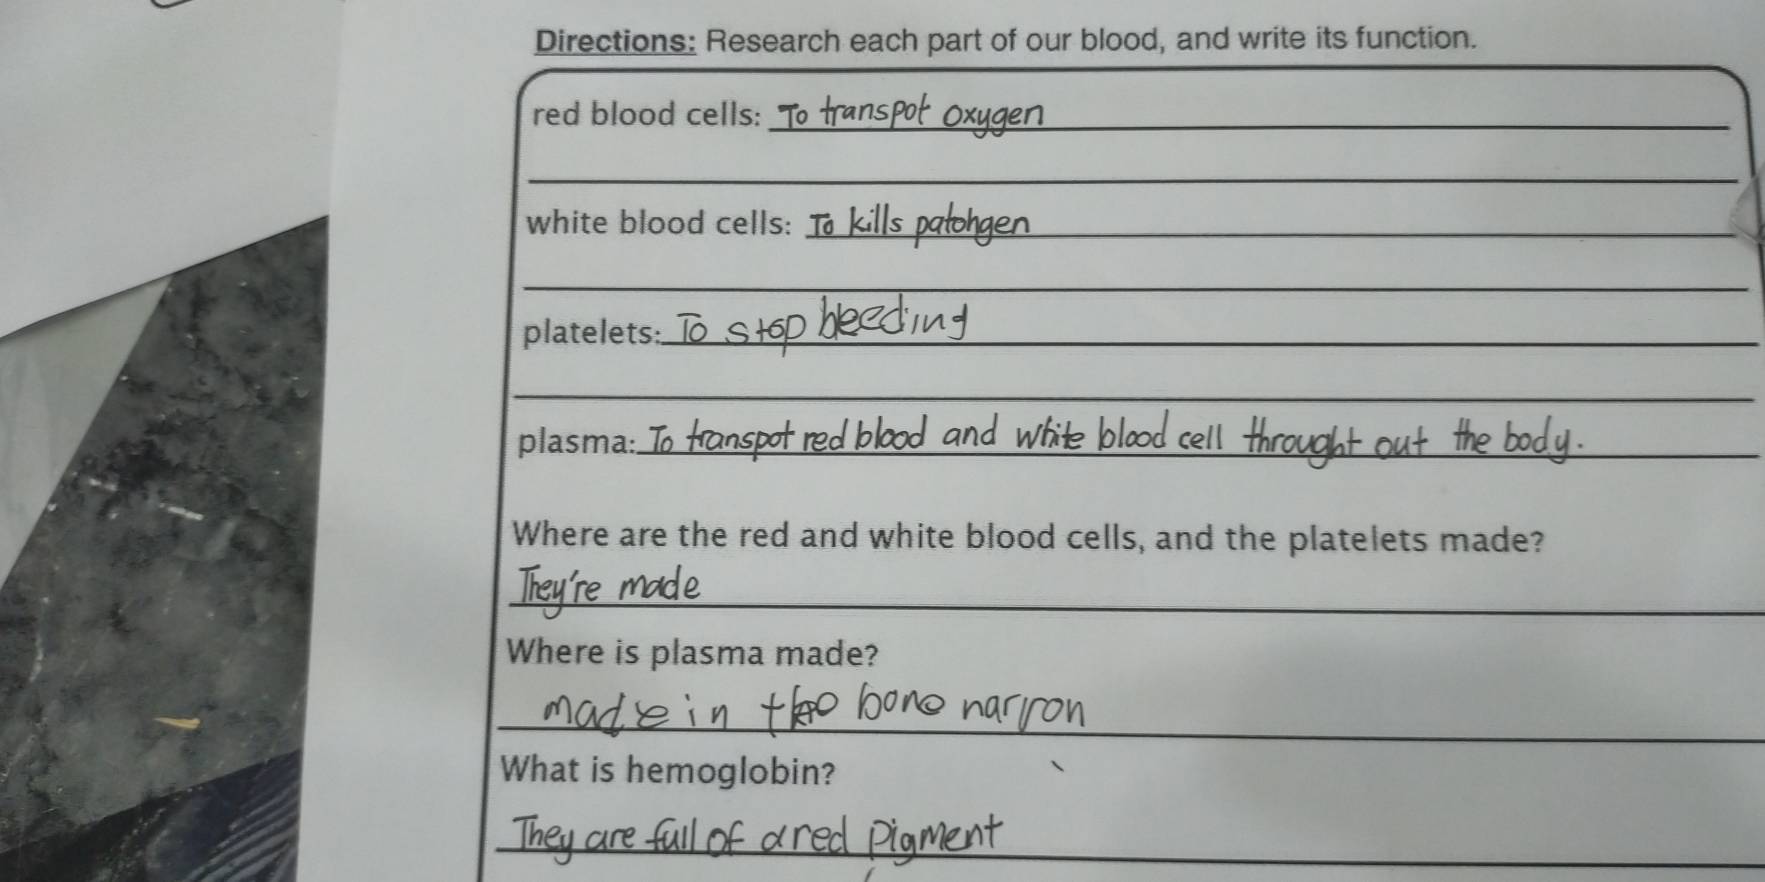 Directions: Research each part of our blood, and write its function.
red blood cells: To transpot oxygen
white blood cells: To kills patohgen
platelets: To stop bleeding
plasma: To transpot red blood and white blood cell throught out the body.
Where are the red and white blood cells, and the platelets made?
They're made
Where is plasma made?
made in the bone narron
What is hemoglobin?
They are full of a red pigment